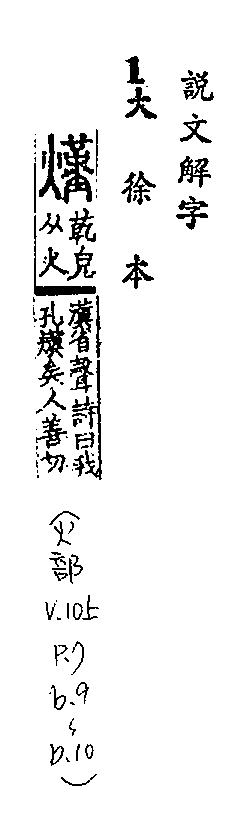 說文解字
1大徐本
熯乾皃
从火
漢省聲詩曰我
孔熯矣人善切
(火部 V.105 P.7 b.9~b.10)